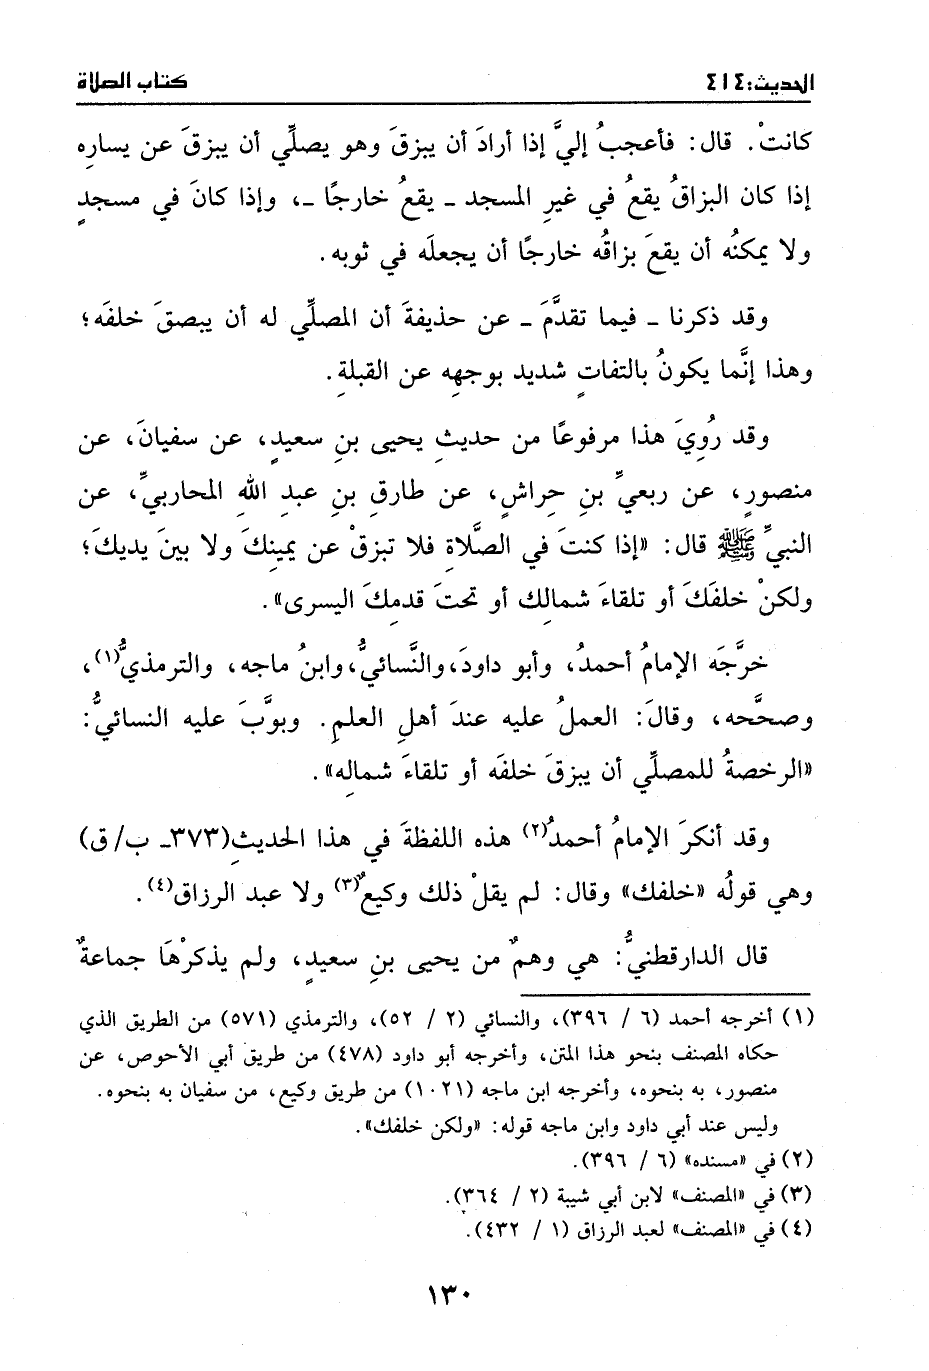 الحديث: ٤١٤
كتاب الصلاة
كانتْ. قال: فأعجبُ إليَّ إذا أرادَ أن يبزقَ وهو يصلِّي أن يبزقَ عن يسارِه
إذا كان البزاقُ يقعُ في غيرِ المسجد ـ يقعُ خارجًا ـ، وإذا كانَ في مسجدٍ
ولا يمكنُه أن يقعَ بزاقُه خارجًا أن يجعلَه في ثوبه.
وقد ذكرنا ـ فيما تقدَّمَ ـ عن حذيفةَ أن المصلِّي له أن يبصقَ خلفَه؛
وهذا إنَّما يكونُ بالتفاتٍ شديد بوجهِه عن القبلةِ.
وقد رُوِيَ هذا مرفوعًا من حديثِ يحيى بنِ سعيدٍ، عن سفيانَ، عن
منصورٍ، عن ربعيِّ بنِ حِراشٍ، عن طارقِ بنِ عبدِ اللهِ المحاربيِّ، عن
النبيِّ ﷺ قال: «إذا كنتَ في الصَّلاةِ فلا تبزقْ عن يمينِكَ ولا بينَ يديكَ؛
ولكنْ خلفَكَ أو تلقاءَ شمالِك أو تحتَ قدمِكَ اليسرى».
خرَّجَه الإمامُ أحمدُ، وأبو داودَ، والنَّسائيُّ، وابنُ ماجه، والترمذيُّ(١)،
وصحَّحه، وقالَ: العملُ عليه عندَ أهلِ العلمِ. وبوَّبَ عليه النسائيُّ:
«الرخصةُ للمصلِّي أن يبزقَ خلفَه أو تلقاءَ شمالِه».
وقد أنكرَ الإمامُ أحمدُ(٢) هذه اللفظةَ في هذا الحديثِ(٣٧٣ـ ب/ ق)
وهي قولُه «خلفك» وقال: لم يقلْ ذلك وكيعٌ(٣) ولا عبد الرزاق(٤).
قال الدارقطنيُّ: هي وهمٌ من يحيى بنِ سعيدٍ، ولم يذكرْهَا جماعةٌ
(١) أخرجه أحمد (٦ / ٣٩٦)، والنسائي (٢ / ٥٢)، والترمذي (٥٧١) من الطريق الذي
حكاه المصنف بنحو هذا المتن، وأخرجه أبو داود (٤٧٨) من طريق أبي الأحوص، عن
منصور، به بنحوه، وأخرجه ابن ماجه (١٠٢١) من طريق وكيع، من سفيان به بنحوه.
وليس عند أبي داود وابن ماجه قوله: «ولكن خلفك».
(٢) في «مسنده» (٦ / ٣٩٦).
(٣) في «المصنف» لابن أبي شيبة (٢ / ٣٦٤).
(٤) في «المصنف» لعبد الرزاق (١ / ٤٣٢).
١٣٠